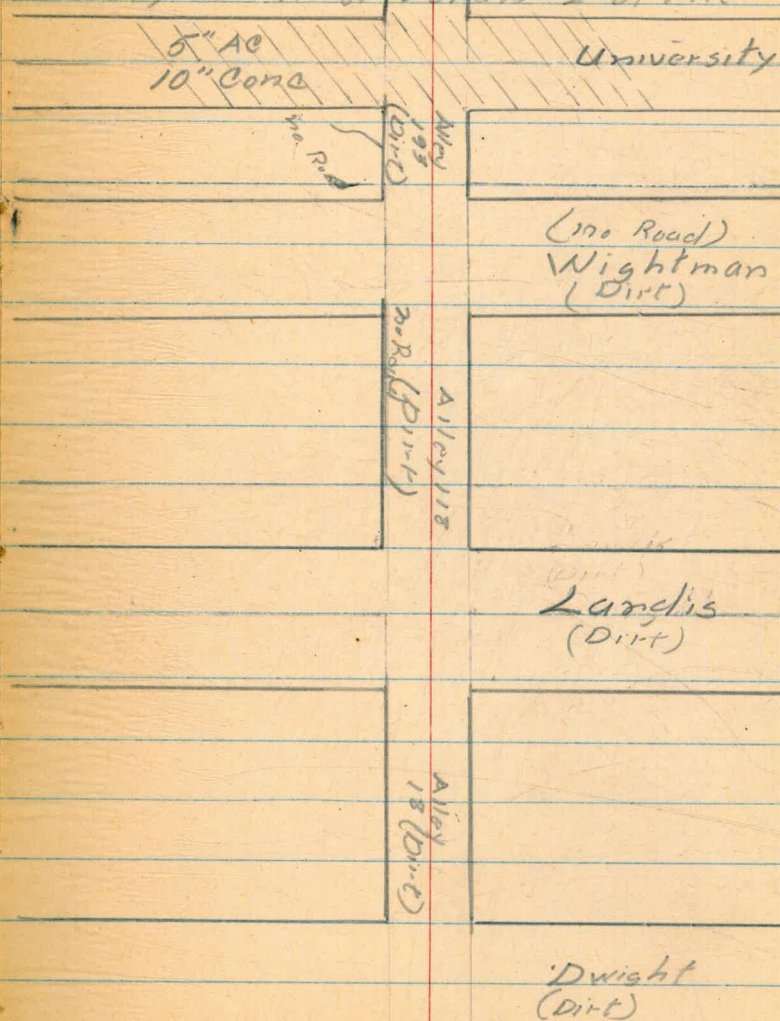 5" AC
10" Conc
University
Alley
193
(Dirt)
no Road
(no Road)
Wightman
(Dirt)
no Road (Dirt)
Alley 118
Landis
(Dirt)
Landis
(Dirt)
Alley
18 (Dirt)
Dwight
(Dirt)